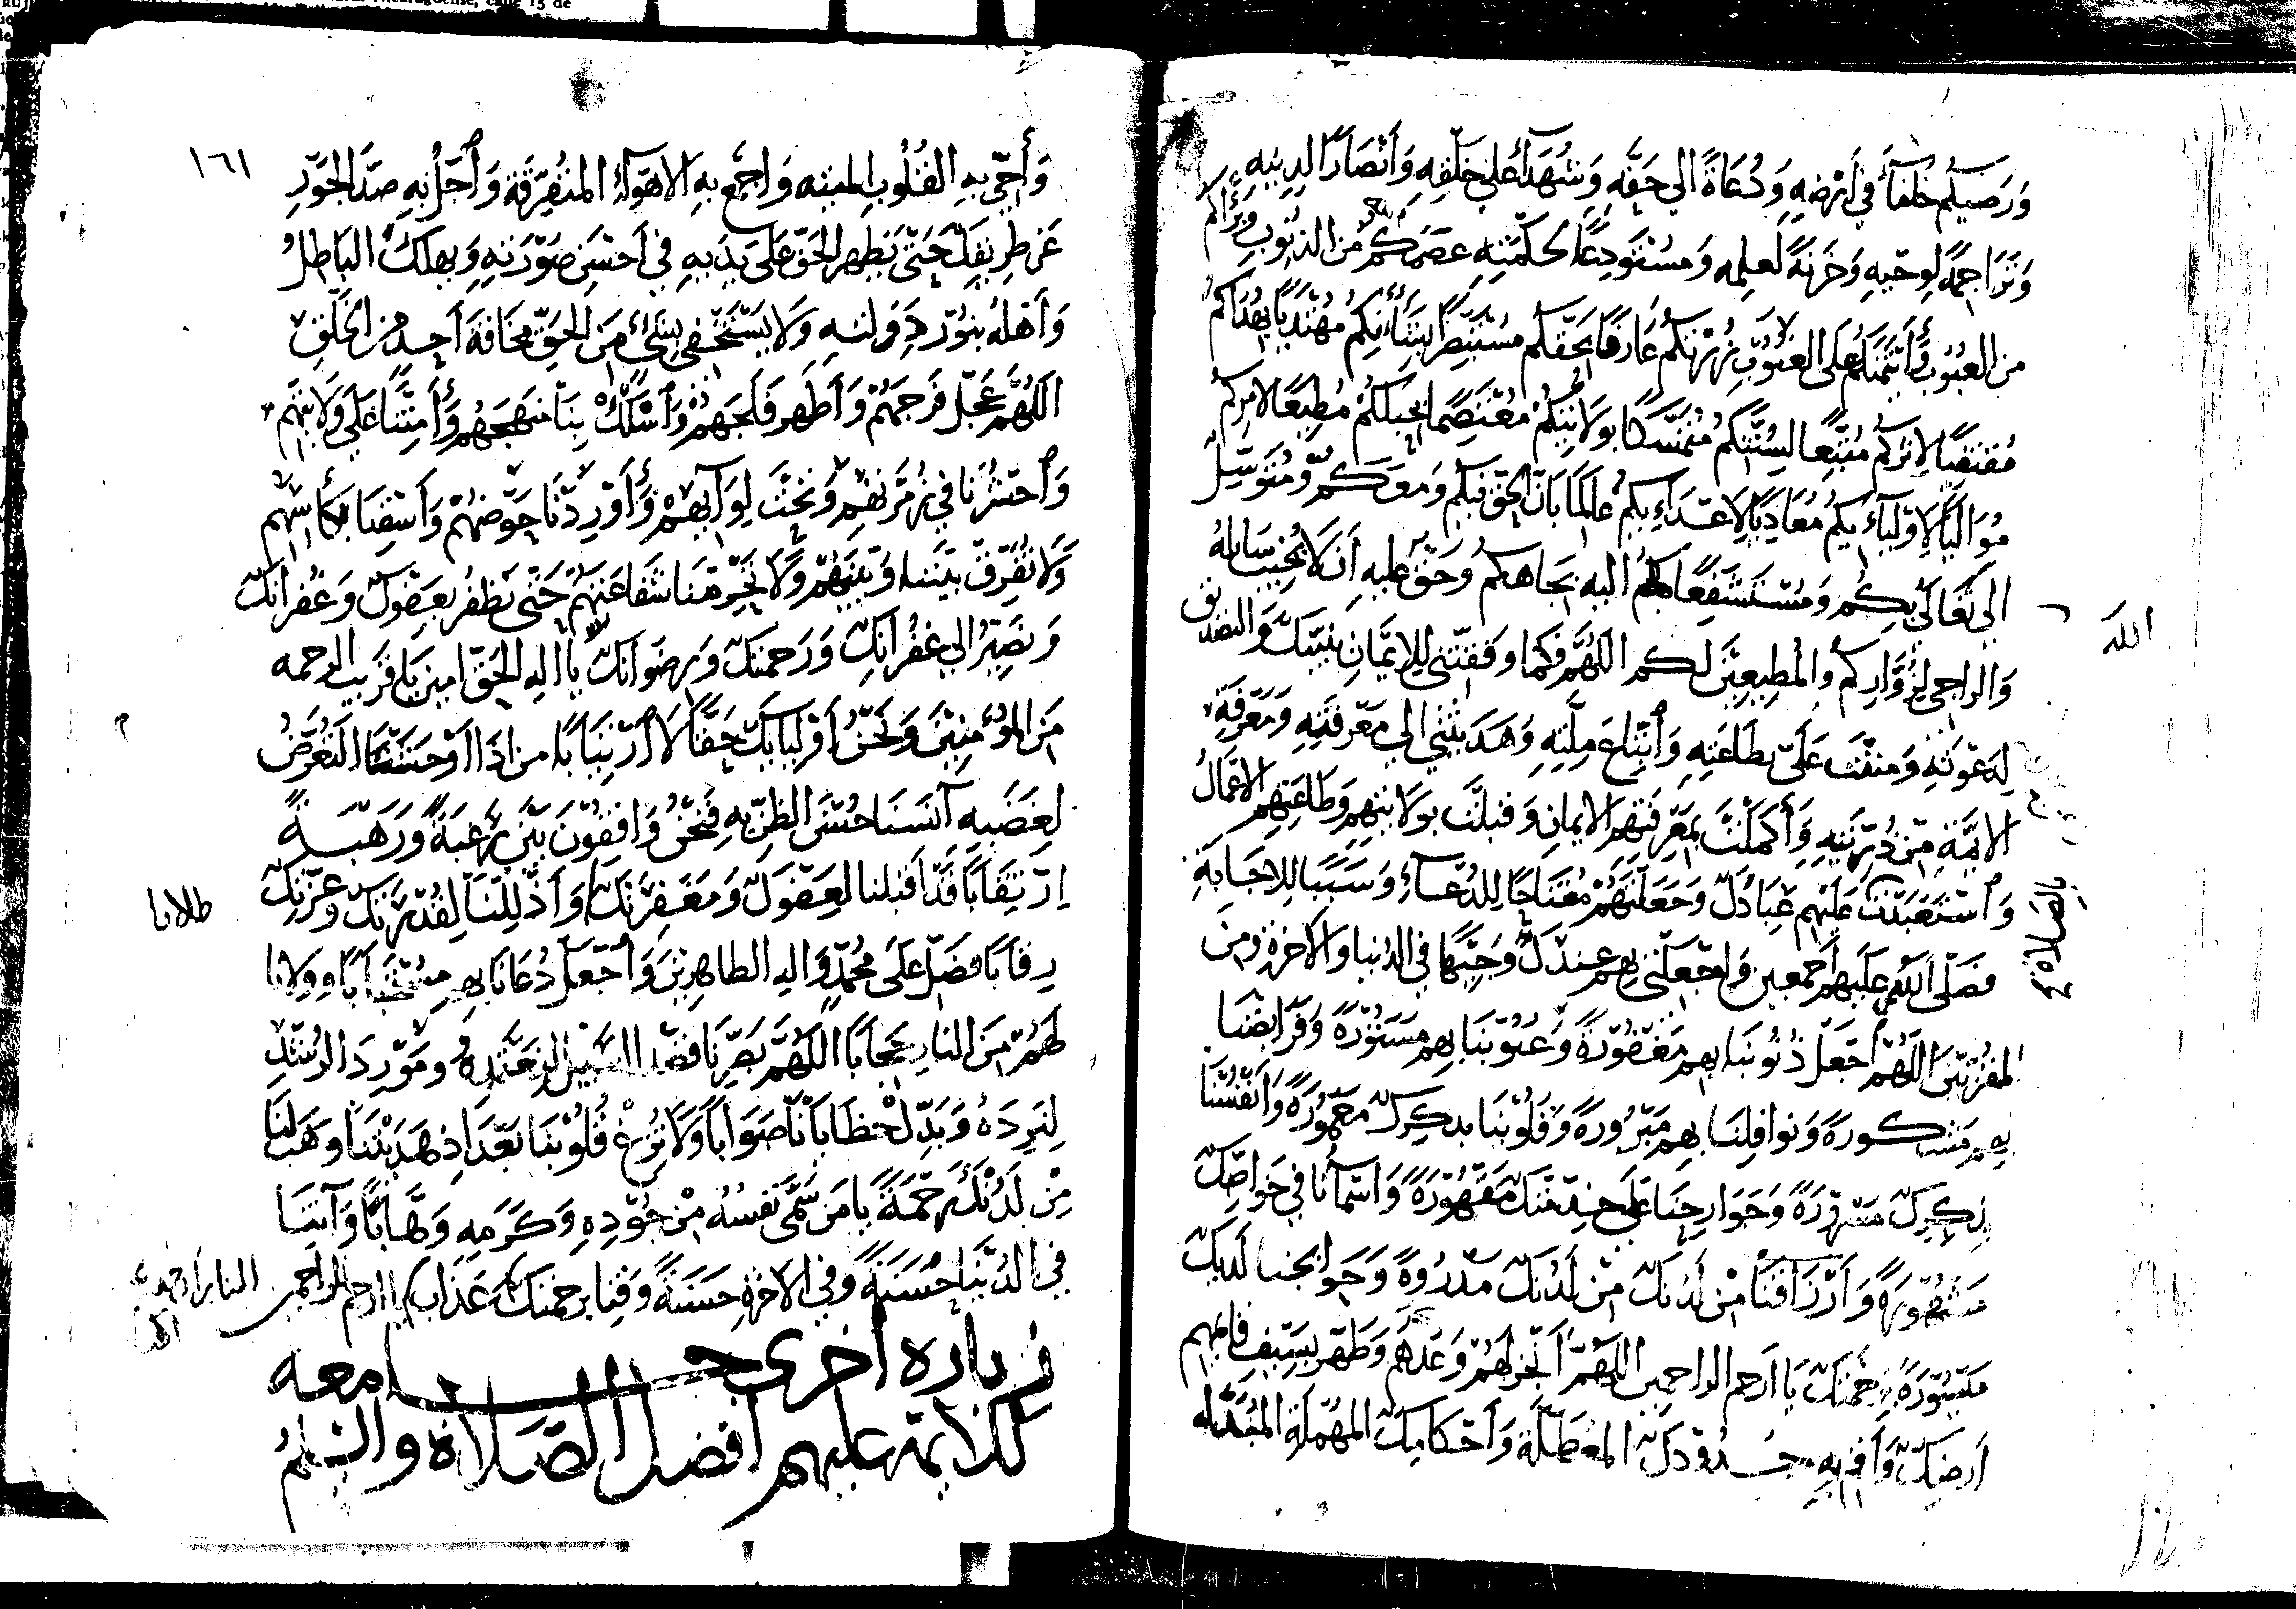 وَرَضِيَكُم خلفاءَ في أَرْضِهِ وَدُعَاةً الى حَقِّهِ وَشُهَدَآءَ عَلى خَلْقِهِ وَأَنْصَارًا لدِينِهِ
وَتَرَاجِمَةً لِوَحْيِهِ وَخَزَنَةً لِعِلمِهِ وَمُسْتَوْدِعًا لحِكْمَتِهِ عَصَمَكُم مِنَ الذنُوبِ وَبَرَّأَكُم
مِنَ العُيُوبِ وَأْتَمَنَكُم عَلَى الغُيُوبِ زُرْتُكُم عَارِفًا بِحَقِّكُم مُسْتَبْصِرًا بِشَأْنِكُم مُهْتَدِيًا بِهُدَاكُم
مُقتَفِيًا لِاثَرِكُم مُتَّبِعًا لِسُنَّتِكُم مُتَمَسِّكًا بوَلَايَتِكُمْ مُعْتَصِمًا بِحَبْلِكُمْ مُطِيعًا لامْرِكُم
مُوَالِيًا لِاوْلِيَآءِيكُم مُعَادِيًا لِاعْدَاءِيكُم عَالِمًا بَانَّ الحَقَّ فِيكُم وَمَعَكُمْ وَمُتَوَسِّلٌ
الى الله تَعَالَى بِكُم وَمُسْتَشْفِعًا اليهِ بِجَاهِكُم وَحَقٌّ عليهِ أن لَا يُخَيِّبَ سَايِلهُ
وَالراجى لِزُوَّارِكُم والمُطِيعِينَ لَكُم اللهُمَّ فَكَمَا وَفَّقْتَنِى لِلايمَانِ بِنَبِيِّكَ وَالتصْدِيق
لِدَعْوَتِهِ وَمَنَنْتَ عَلَىَّ بطَاعَتِهِ وَأتِّبَاعِ مِلَّتِهِ وَهَدَيْتَنِي الى مَعْرِفَتِهِ وَمَعْرِفَةِ
الايِمَّةِ مِن ذُرِّيَتِهِ وَأَكْمَلْتَ بمَعْرِفَتِهِم الايمَانَ وَقَبِلْتَ بوَلَايَتِهِم وَطَاعَتِهِم الاعْمَالَ
وَأسْتَعْبَدْتَ عَلَيْهِم عِبَادَكَ وَجَعَلْتَهُمْ مِفْتَاحًا لِلدُعَآءِ وَسَبَبًا لِلاجَابَةِ
فَصَلِّ اللهُم عَلَيهِم أجمعين وَاجْعَلْنِى بِهِم عِنْدَكَ وَجِيهًا فى الدُنيا وَالاخِرَةِ وَمِنَ
المقَرَّبِينَ اللَّهُمَّ أجْعَلْ ذُنُوبَنَا بِهِم مَغْفُورَةً وَعُيُوبَنَا بِهِم مَسْتُورَةً وَفَرَايِضَنَا
بِهِم مَشكُورَةً وَنَوافِلِنَا بِهِم مَبْرُورَةً وَقُلُوبَنَا بِذِكْرِكَ مَعْمُورَةً وَأَنْفُسَنَا
بِذِكْرِكَ مَسْرُورَةً وَجَوَارِحَنَا عَلَى خِدْمَتِكَ مَقْهُورَةً وَاسْمَآنَا فى خَوَاصِّكَ
مَشْهُورَةً وَأَرْزَاقَنَا مِنْ لَدُنْكَ مَدْرُورَةً وَحَوَايِجَنا لَدَيْكَ
مَيْسُورَةً بِرَحْمَتِكَ يَا أرحم الراحمين اللهُمَّ أَنْجِزْ لَهُمْ وَعْدَهُم وَطَهِّرْ بِسَيْفِ قَايِمِهِم
أَرضَكَ وَأَقِمْ بِهِ حُدُودَكَ المُعَطَّلَةَ وَأَحْكَامِكَ المُهْمَلَةَ المُبَدَّلَه
الله
١٦١
وَأَحْيِ بِهِ القُلُوبَ الميته وَاجْمَع بِهِ الاهْوَآءَ المتُفَرِّقَةَ وَأجْلُ بِهِ صَدَأَ الجَوْرِ
عَن طَرِيقِكَ حَتَّى يَظْهَر الحَقُّ عَلَى يَدَيهِ فى أَحْسَنِ صُوْرَتِهِ وَيَهلِكَ البَاطِلُ
وَأَهْلهُ بِنُوْرِ دَوْلَتِهِ وَلَا يَسْتَخْفِى بِشَىْءٍ مِنَ الحَقِّ مَخَافَةَ أحَدٍ مِنَ الخَلْقِ
اللهُمَّ عَجِّلْ فَرَجَهُمْ وَأَظْهِر فَلْجَهُمْ وَأسْلُكْ بِنَا مَنهَجَهُم وَأَمِتْنَا عَلَى وَلَايَتِهِم
وَأحْشُرْنَا فى زُمْرَتِهِم وَتَحْتَ لِوَآيِهِمْ وَأَوْرِدْنَا حَوْضَهُمْ وَاَسْقِنَا بِكَأسِهِم
وَلَا تُفَرِّقْ بَيْنَنَا وَبَيْنَهُمْ وَلَا تَحْرِمْنَا شَفَاعَتَهُمْ حَتَّى نَظْفَرَ بِعَفْوِكَ وَغُفْرَانِكَ
وَنَصِيرَ الى غُفْرَانِكَ وَرَحمتكَ وَرِضوَانِكَ يا اله الحَقِّ امين يَا قَرِيب الرحمه
مِنَ المؤْمِنِينَ وَنَحْنُ أَوْلِيَايكَ حَقًّا لَا أرْتِيَابًا يا من اذَا أَوْحَشَنَا التَعَرُّضُ
لِغَضَبِهِ آنَسَنَا حُسْنُ الظَنِّ بِهِ فَنَحْنُ وَاقِفُوْنَ بَيْنَ رَغْبَةً وَرَهْبَةً
اِرْتِقَابًا قَدْ اَقبلنا لعَفْوِكَ وَمَغْفِرَتِكَ وَأَذْلَلْنَا لِقُدْرَتِكَ وَعِزَّتِكَ
رِقَابًا فَصَلِّ عَلَى مُحَمَّدٍ وَاله الطاهِرِينَ وَأجْعَلْ دُعَانَا بِهِم مُسْتَجَابًا وَوِلانا
لَهُمْ مِنَ النارِ حِجَابًا اللهُمَّ بَصِّرْنَا قَصْدَ السَبِيلِ لِنَعْتَمِدَهُ وَمَوْرِدَ الرُشْدِ
لِنَرِدَهُ وَبَدِّلْ خَطَايَانَا صَوَابًا وَلَا تُزِغْ قُلُوْبَنَا بَعْدَ اِذ هَدَيْتَنَا وَهَب لَنَا
مِنْ لَدُنْكَ رَحْمَةً يَا مَن سَمَّى نَفسُهُ مِنْ جُوْدِهِ وَكَرَمِهِ وَهَّابًا وَآتِنَا
فى الدُنْيَا حَسَنَةً وَفى الاخِرَةِ حَسَنَةً وَقِنَا برحمتكَ عَذَابَ النار يا ارحم الراحمين
زياره أخرى جامعه
للايمة عليهم أفضل الصَلاة والسَلمُ